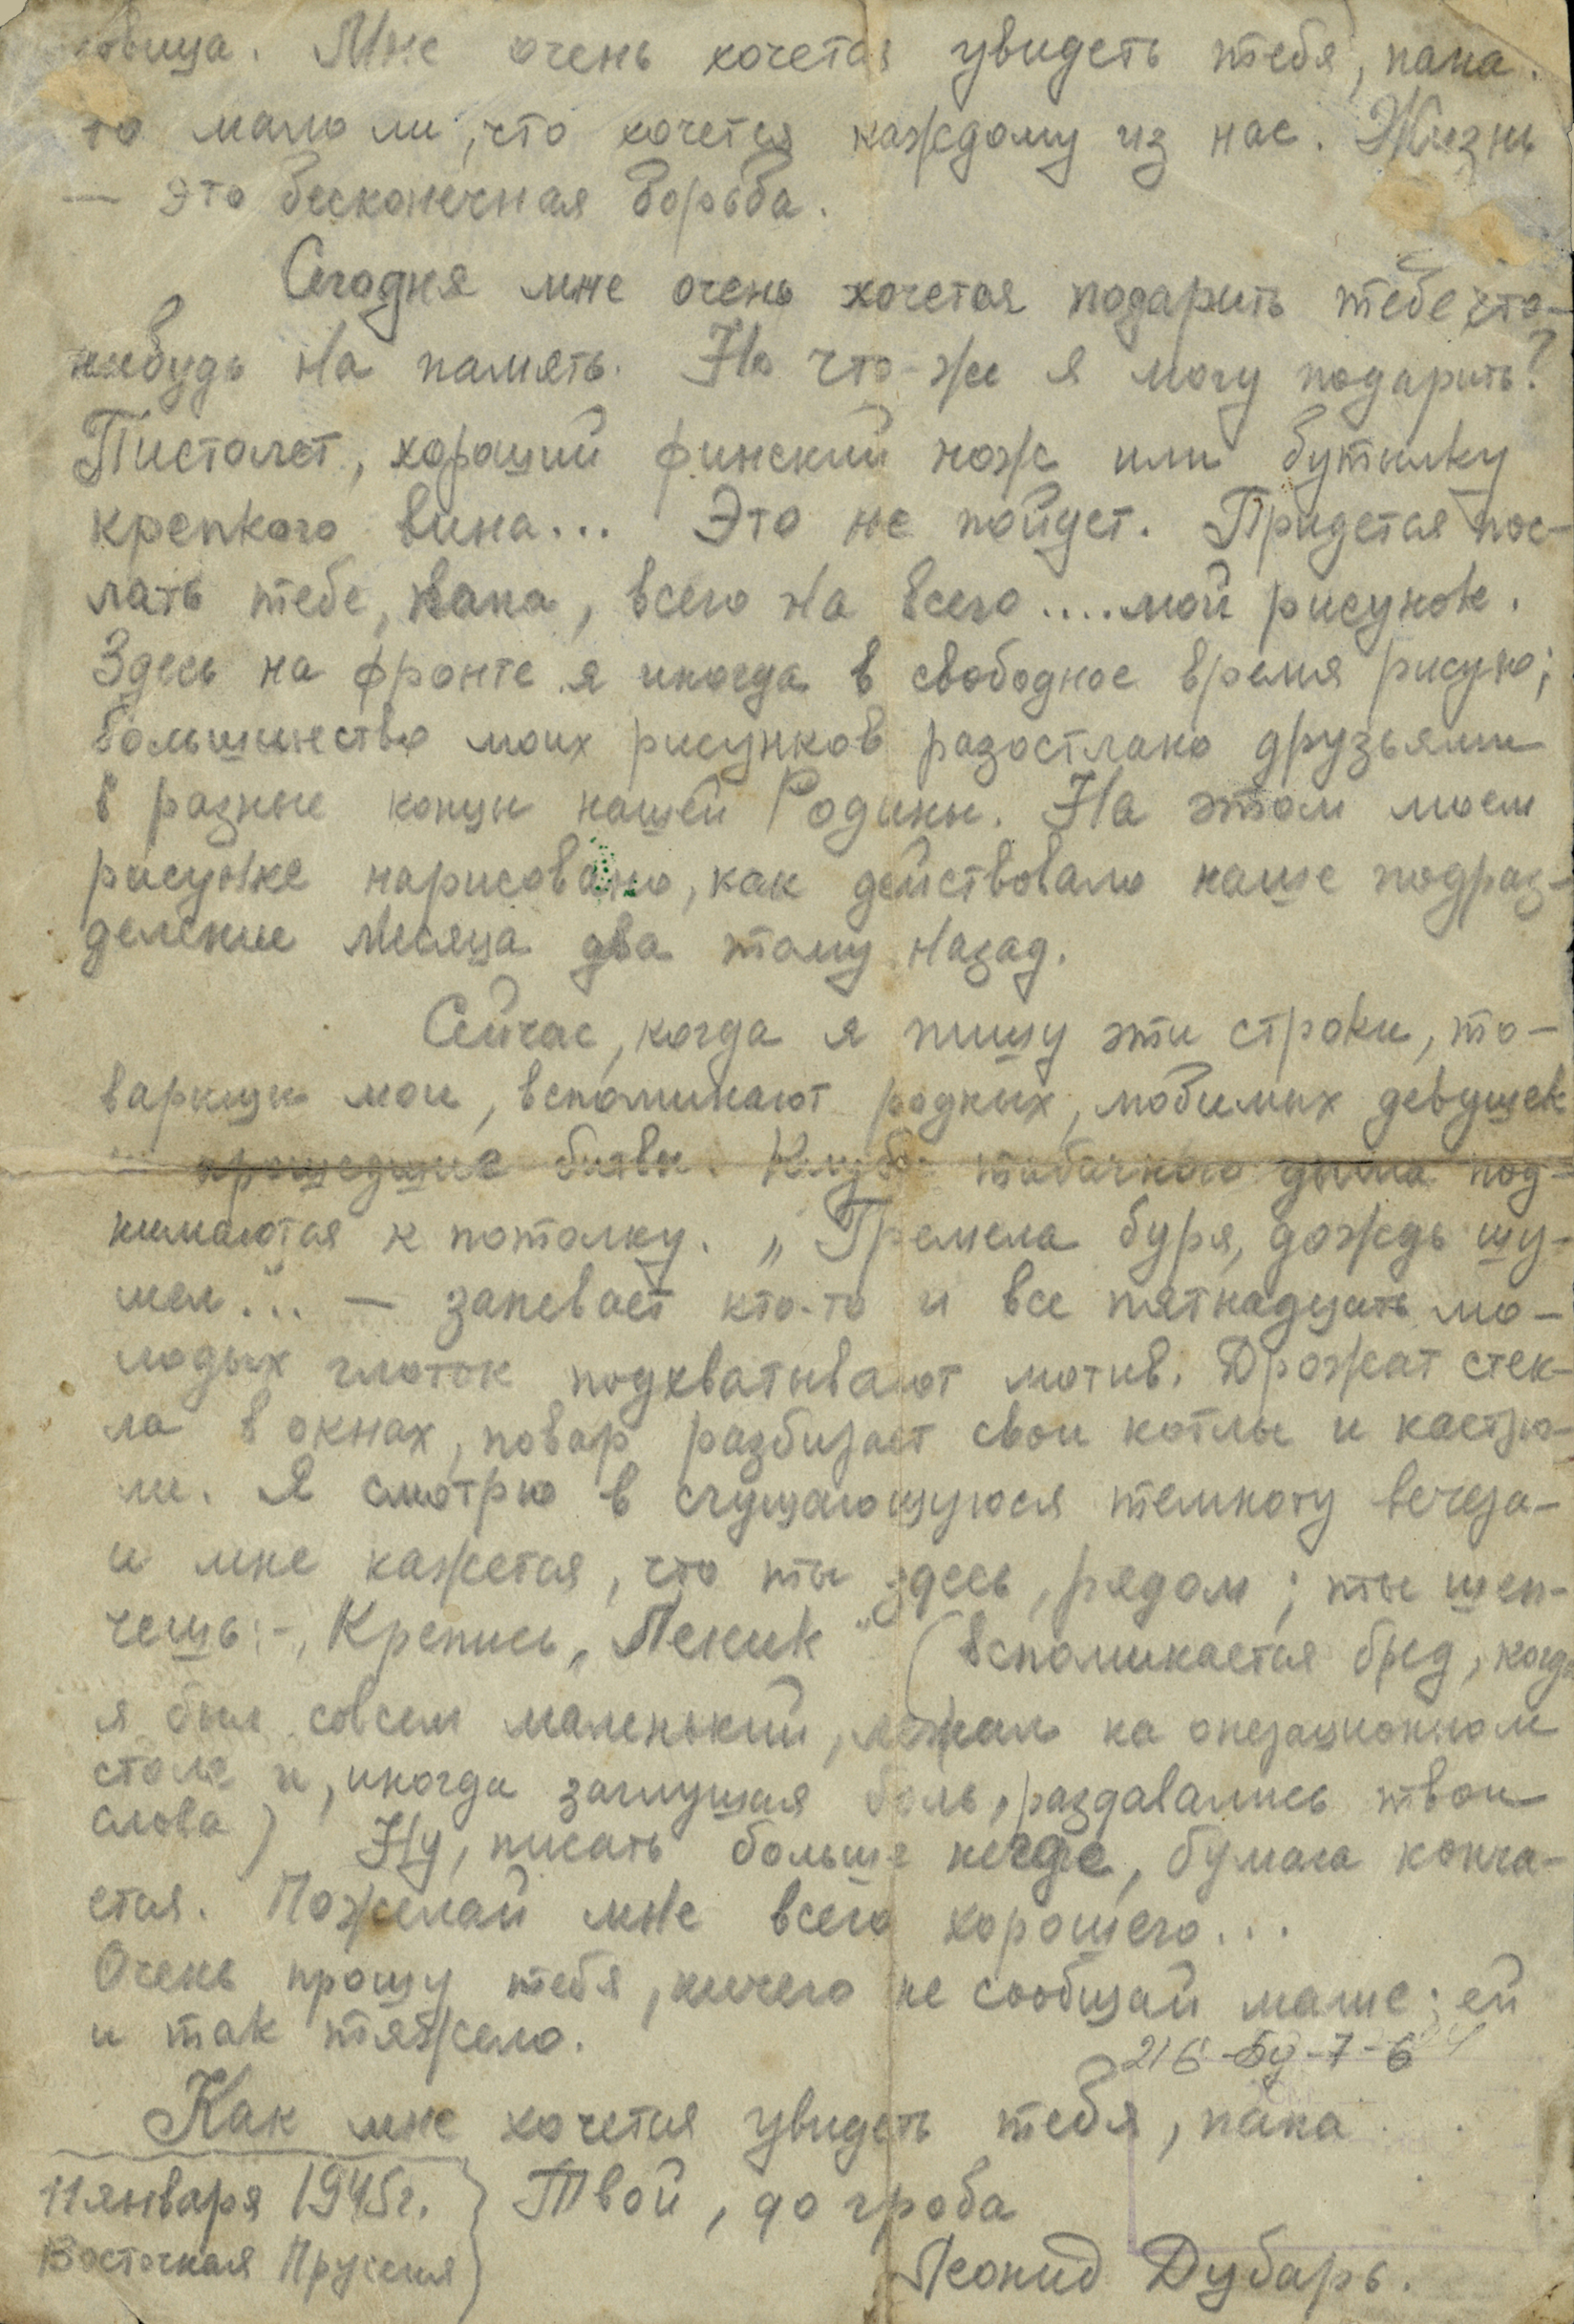 Мне очень хочется увидеть тебя, папа.
то мало ли, что хочется каждому из нас. Жизнь
— это бесконечная борьба.
Сегодня мне очень хочется подарить тебе что-
нибудь на память. Но что-же я могу подарить?
Пистолет, хороший финский нож или бутылку
крепкого вина... Это не пойдет. Придется пос-
лать тебе, папа, всего на всего ....мой рисунок.
Здесь на фронте я иногда в свободное время рисую;
большинство моих рисунков разостлано друзьями
в разные концы нашей Родины. На этом моем
рисунке нарисовано, как действовало наше подраз-
деление месяца два тому назад.
Сейчас, когда я пишу эти строки, то-
варищи мои, вспоминают родных, любимых девушек
прошедшие битвы. Клубы табачного дыма под-
нимаются к потолку. „Гремела буря, дождь шу-
мел"... — запевает кто-то и все пятнадцать мо-
лодых глоток подхватывают мотив. Дрожат стек-
ла в окнах, повар разбирает свои котлы и кастрю-
ли. Я смотрю в сгущающуюся темноту вечера-
и мне кажется, что ты здесь, рядом; ты шеп-
чешь:-, Крепись, „Леник" (вспоминается бред, когда
я был совсем маленький, лежал на операционном
столе и, иногда заглушая боль, раздавались твои
слова) Ну, писать больше негде, бумага конча-
ется. Пожелай мне всего хорошего...
Очень прошу тебя, ничего не сообщай маме; ей
и так тяжело.
216-бу-7-6
Как мне хочется увидеть тебя, папа
11 января 1945г. } Твой, до гроба
Восточная Пруссия }
Леонид Дубарь.